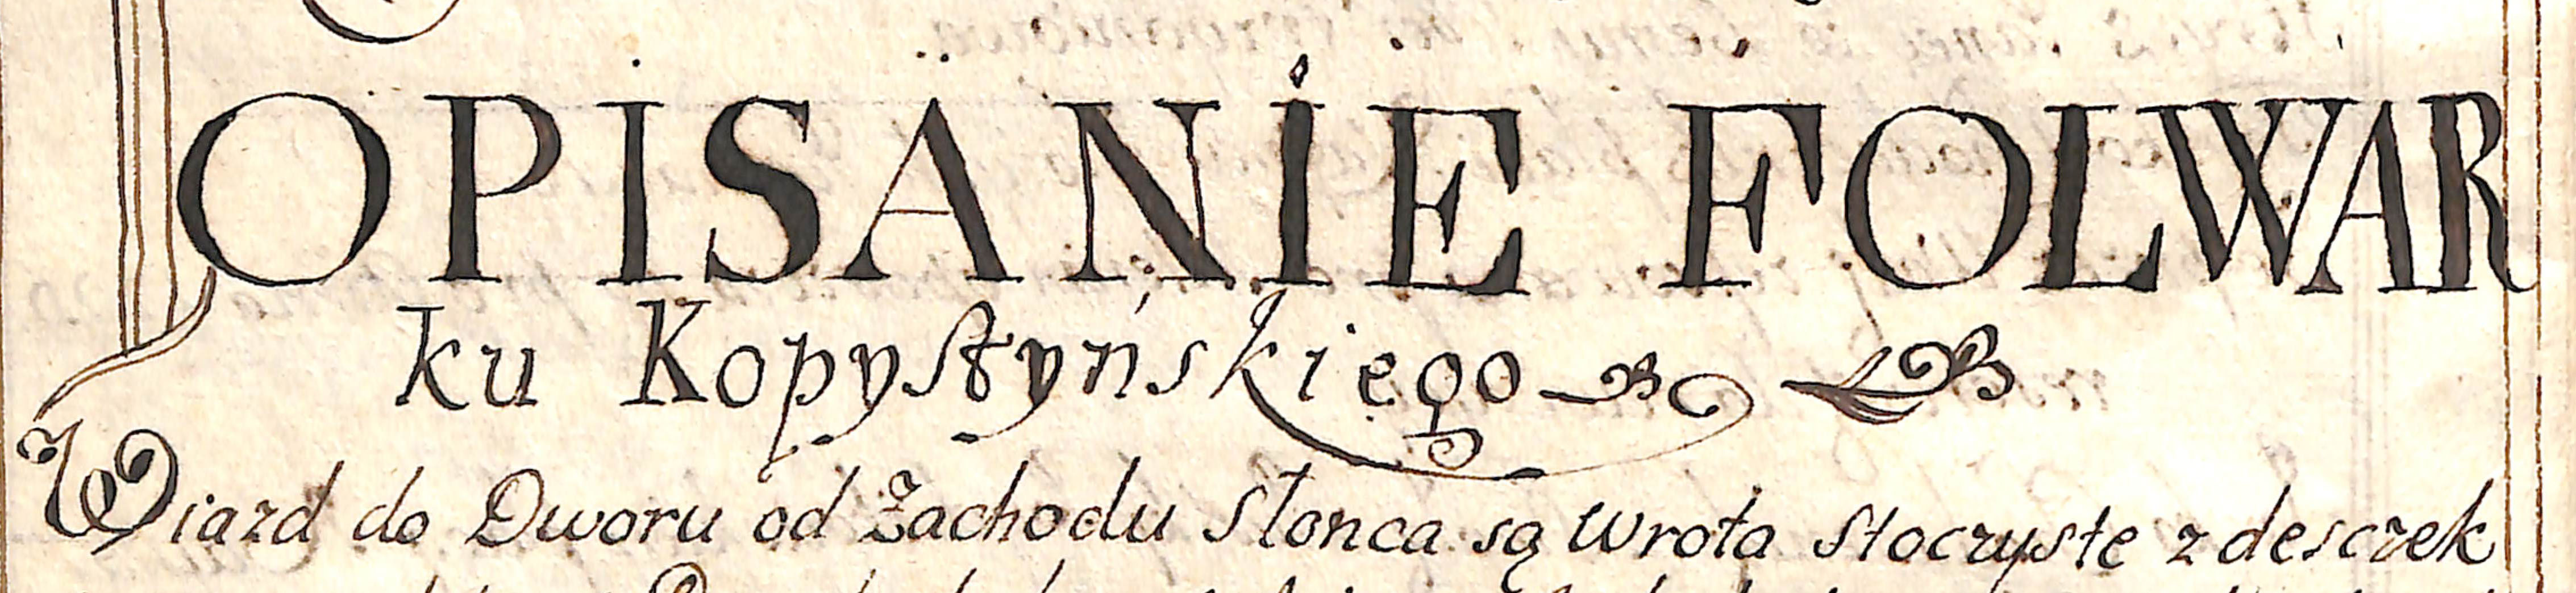 OPISANIE FOLWAR
ku Kopystyńskiego
Wiazd do Dworu od Zachodu Słonca są Wrota stoczyste z desczek